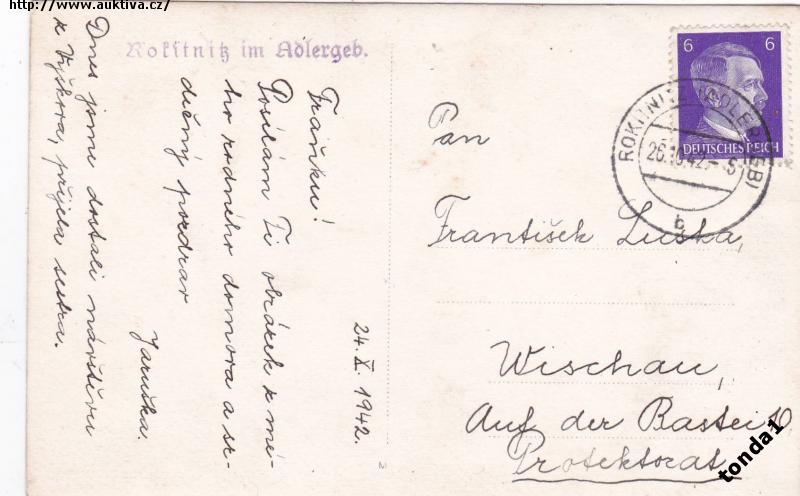 http://www.auktiva.cz/
Rokitnitz im Adlergeb.
Fraňku!
Posílám Ti obrázek z mé-
ho rodného domova a sr-
dečný pozdrav
Jaruška.
24. X. 1942.
Dnes jsme dostali návštěvu
z Vyškova, přijela sestra.
6 6
DEUTSCHES REICH
ROKITNITZ (ADLERGEB)
26.10.42.-5
b
Pan
František Luska,
Wischau,
Auf der Bastei 10.
Protektorat.
tonda1